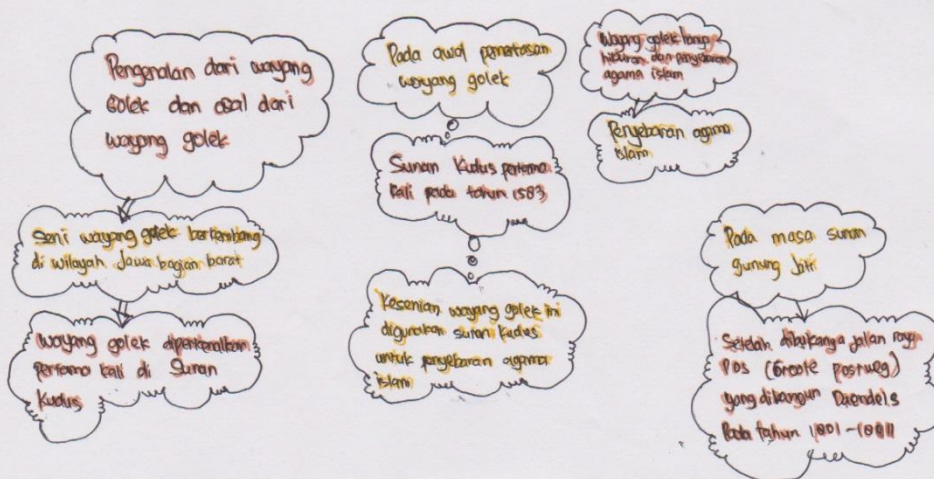 Pengenalan dari wayang
golek dan asal dari
wayang golek
Seni wayang golek berkembang
di wilayah Jawa bagian barat
wayang golek diperkenalkan
pertama kali di Sunan
Kudus
Pada awal pementasan
wayang golek
Sunan Kudus pertama
kali pada tahun 1583
Kesenian wayang golek ini
digunakan sunan kudus
untuk penyebaran agama
islam
Wayang golek
hiburan dan penyebaran
agama islam
Penyebaran agama
islam
Pada masa sunan
gunung Jati
Setelah dibukanya jalan raya
POS (Groote postweg)
yang dibangun Daendels
Pada tahun